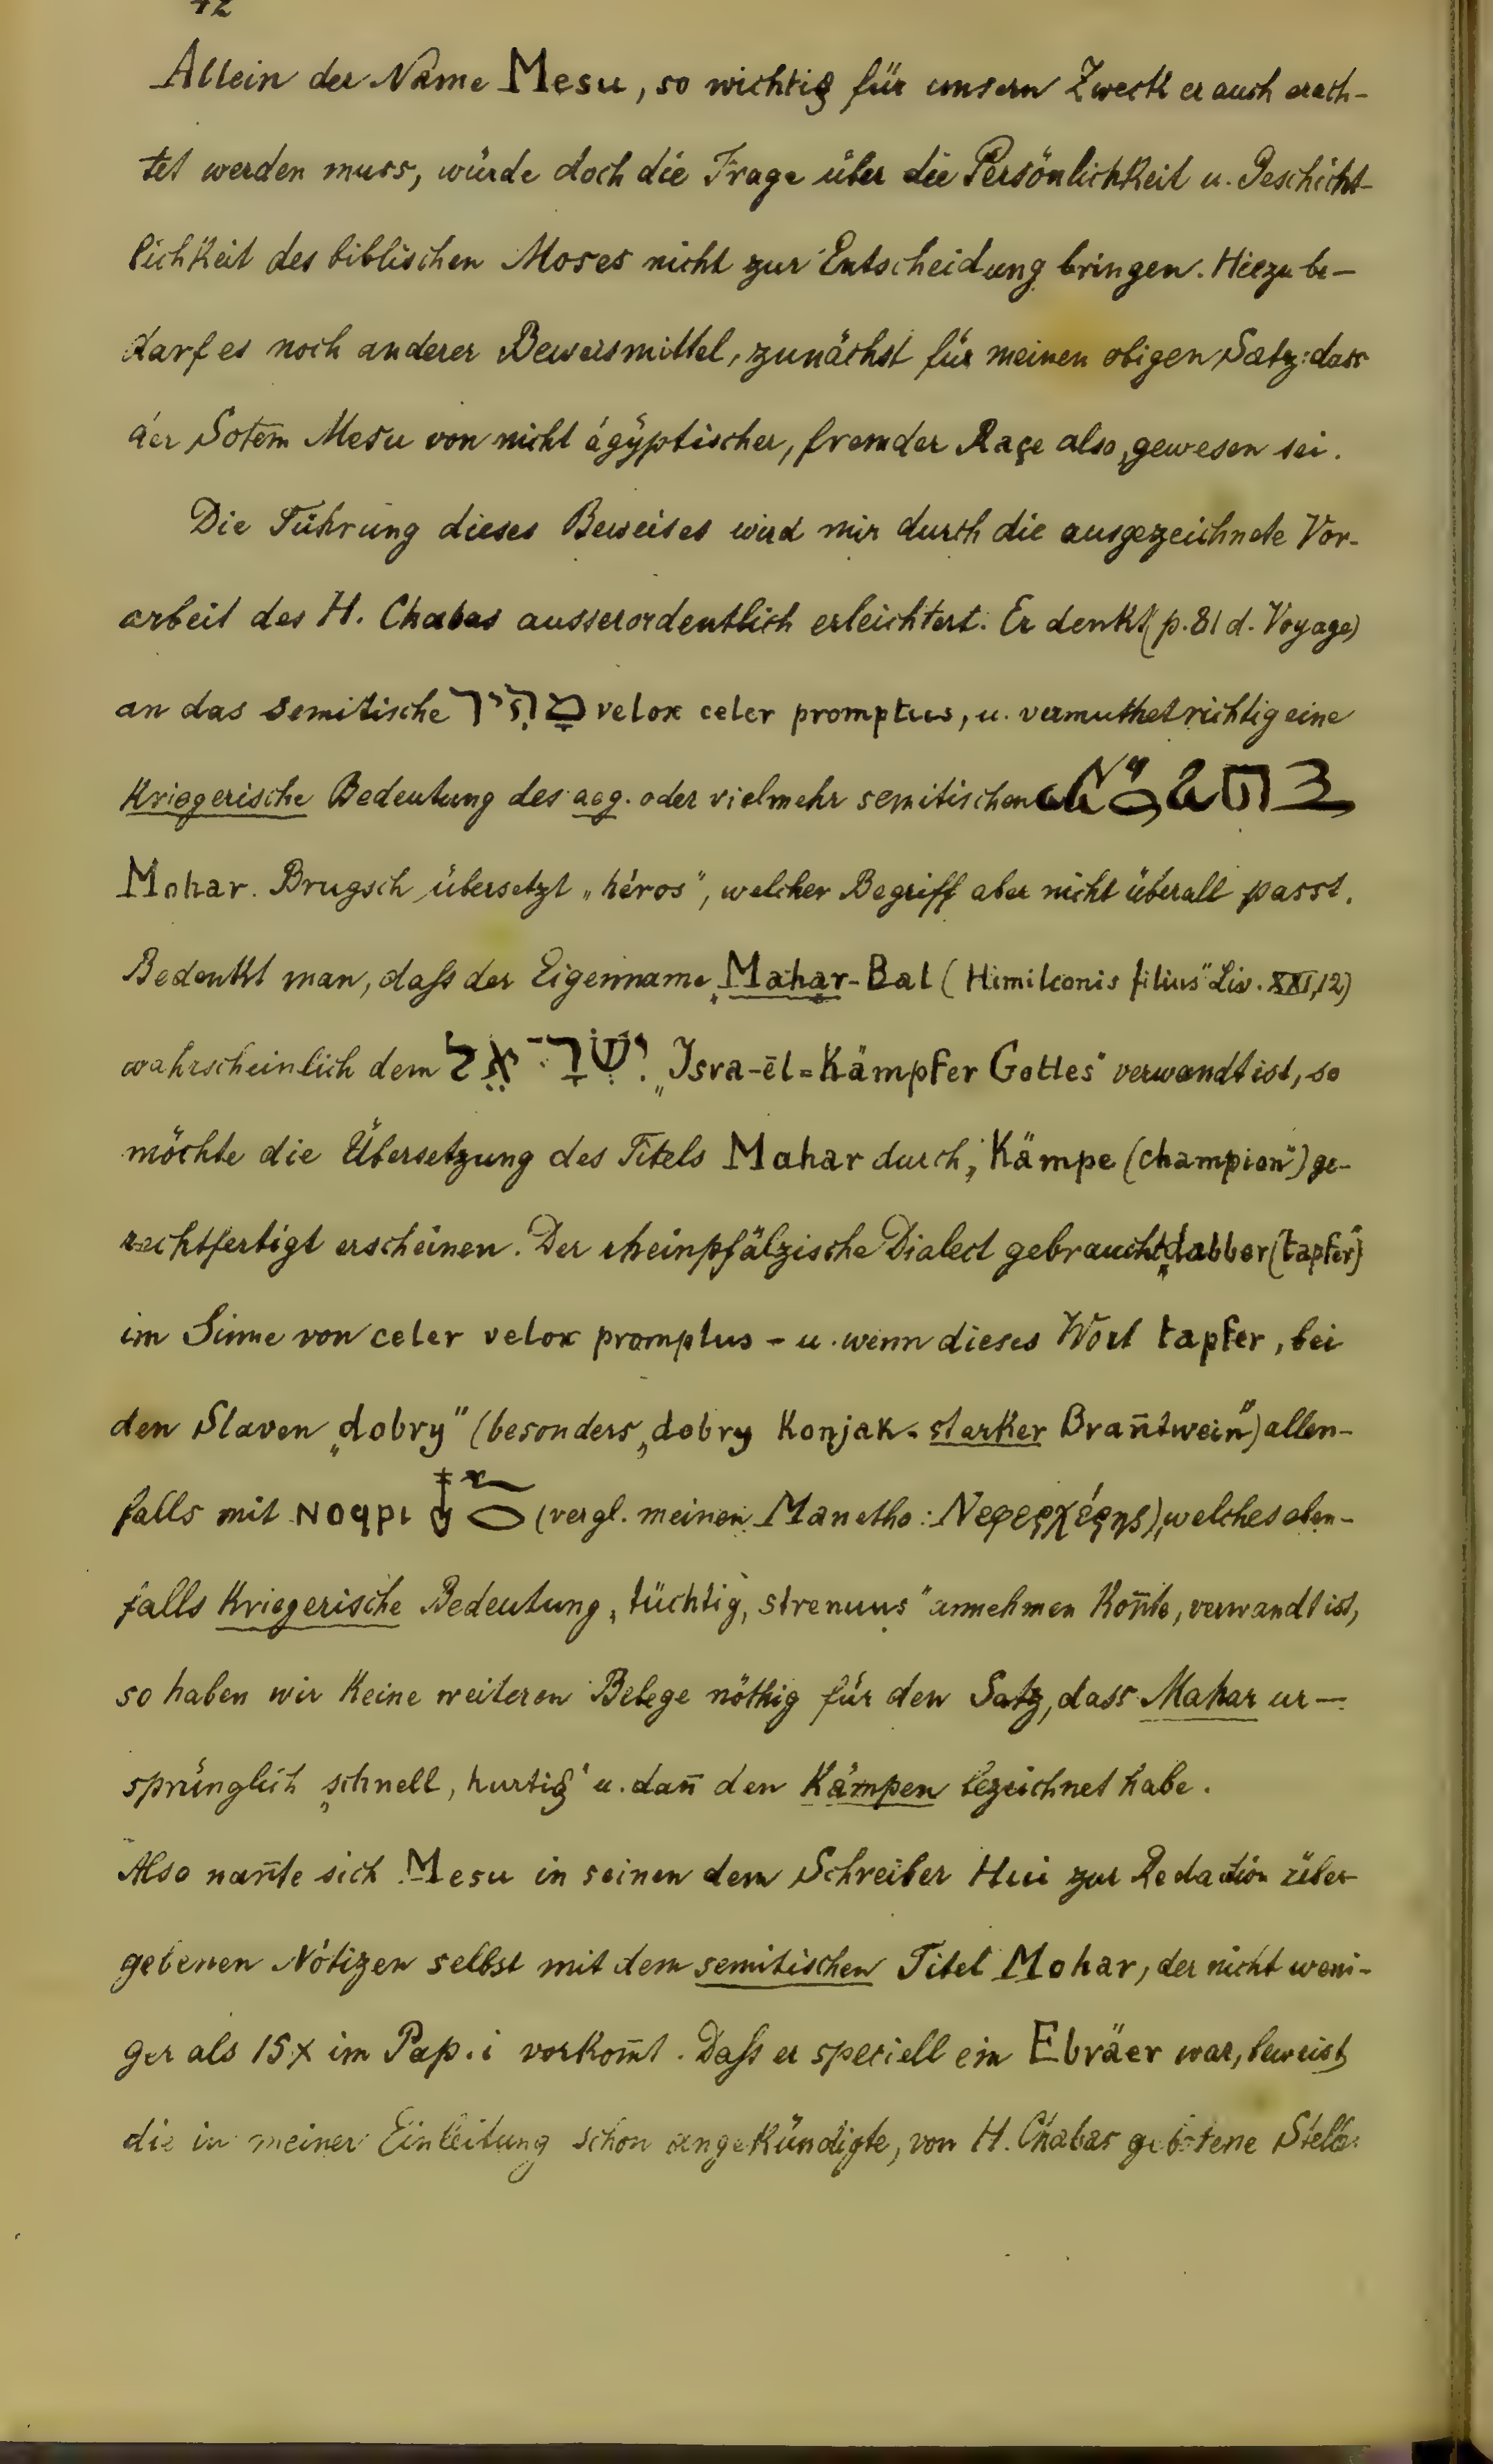 42
Allein der Name Mesu, so wichtig für unsern Zweck er auch erach-
tet werden muss, würde doch die Frage über die Persönlichkeit u. Geschicht-
lichkeit des biblischen Moses nicht zur Entscheidung bringen. Hiezu be-
darf es noch anderer Beweismittel, zunächst für meinen obigen Satz: dass
der Sotem Mesu von nicht ägyptischer, fremder Raçe also, gewesen sei.
Die Führung dieses Beweises wird mir durch die ausgezeichnete Vor-
arbeit des H. Chabas ausserordentlich erleichtert. Er denkt (p. 81 d. Voyage)
an das semitische מָהִיר velox celer promptus, u. vermuthet richtig eine
kriegerische Bedeutung des aeg. oder vielmehr semitischen
Mohar. Brugsch übersetzt „héros", welcher Begriff aber nicht überall passt.
Bedenkt man, daſs der Eigenname „Mahar-Bal (Himilconis filius" Liv. XXI,12)
wahrscheinlich dem יִשְׂרָאֵל „Isra-ēl = Kämpfer Gottes" verwandt ist, so
möchte die Übersetzung des Titels Mahar durch „Kämpe (champion") ge-
rechtfertigt erscheinen. Der rheinpfälzische Dialect gebraucht „dabber (tapfer)"
im Sinne von celer velox promptus – u. wenn dieses Wort tapfer, bei
den Slaven „dobry" (besonders „dobry Konjak = starker Bran̄twein") allen-
falls mit ⲛⲟϥⲣⲓ (vergl. meinen Manetho: Νεφερχέρης), welches eben-
falls kriegerische Bedeutung „tüchtig, strenuus" annehmen kon̄te, verwandt ist,
so haben wir keine weiteren Belege nöthig für den Satz, dass Mahar ur-
sprünglich „schnell, hurtig" u. dan̄ den Kämpen bezeichnet habe.
Also nan̄te sich Mesu in seinen dem Schreiber Hui zur Redaction über-
gebenen Notizen selbst mit dem semitischen Titel Mohar, der nicht weni-
ger als 15× im Pap. i vorkom̄t. Daſs er speciell ein Ebräer war, beweist
die in meiner Einleitung schon angekündigte, von H. Chabas gebotene Stelle: